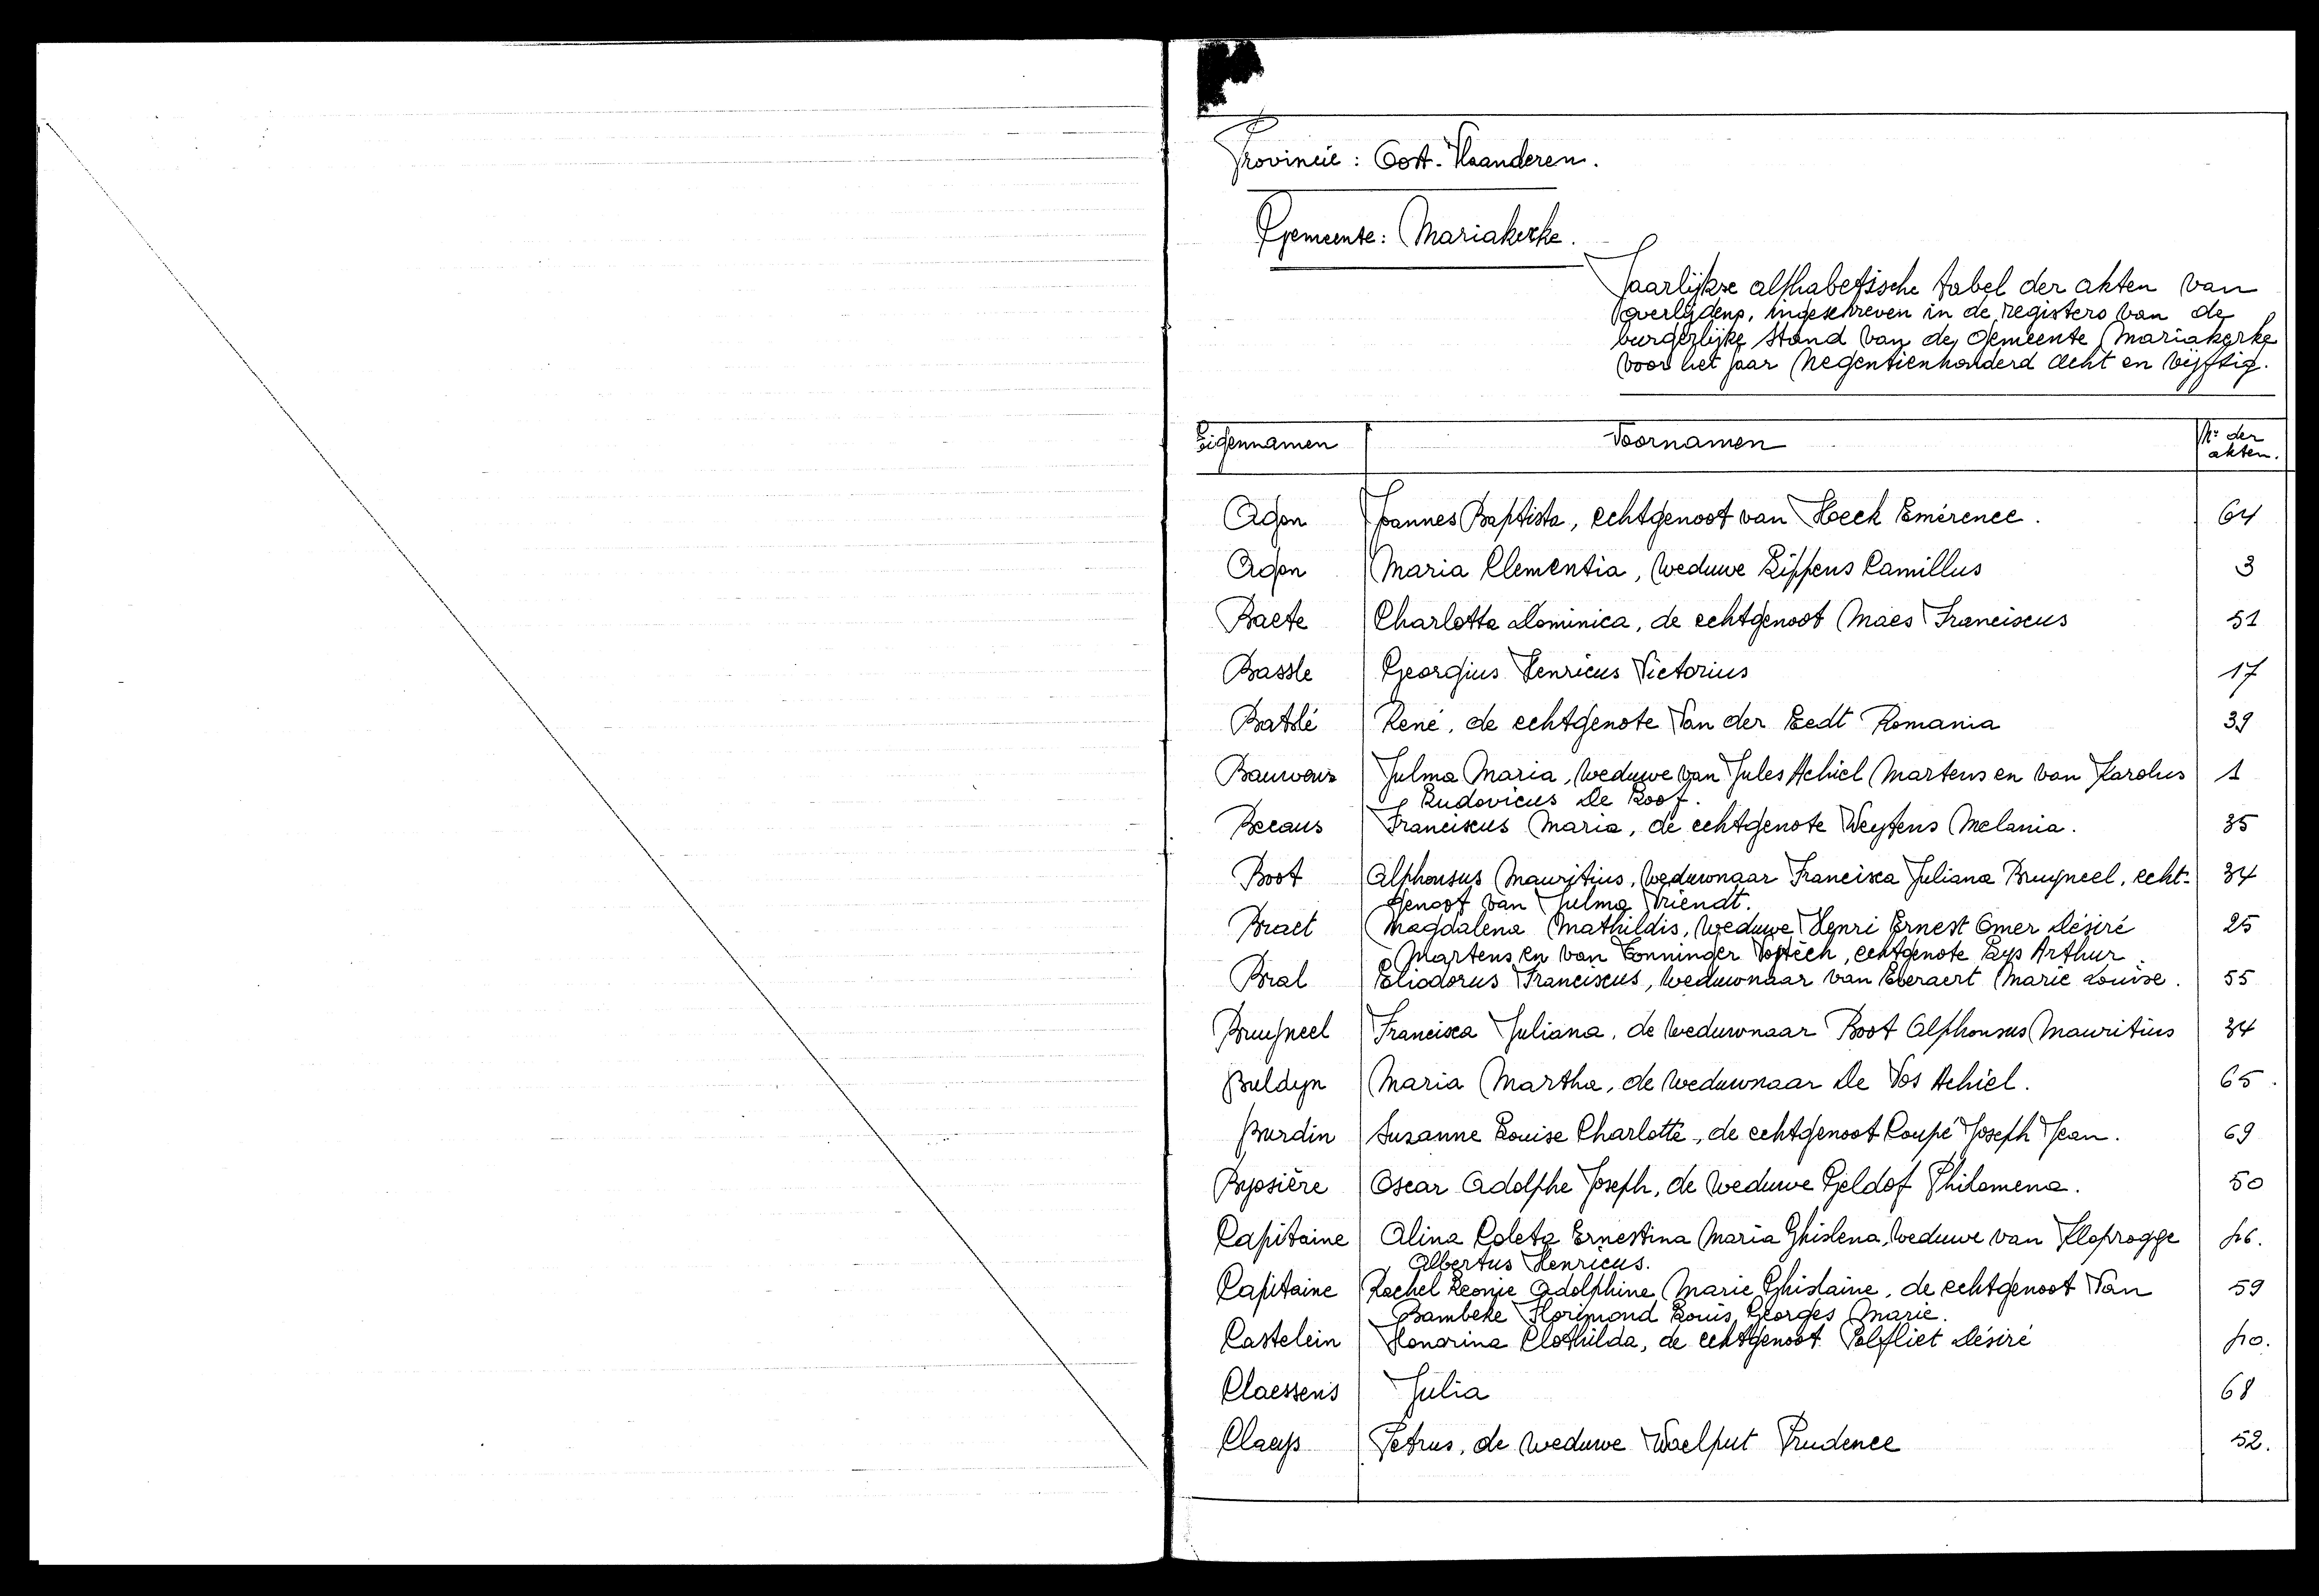 Provincie : Oost-Vlaanderen.
Gemeente : Mariakerke.
Jaarlijkse alphabetische tabel der akten van
overlijdens, ingeschreven in de registers van de
burgerlijke stand van de gemeente Mariakerke
voor het jaar negentienhonderd acht en vijftig.
Eigennamen Voornamen Nr der akten.
Agon Joannes Baptista, echtgenoot van Hoeck Emérence. 64
Agon Maria Clementia, weduwe Lippens Camillus 3
Baete Charlotta Dominica, de echtgenoot Maes Franciscus 51
Bassle Georgius Henricus Victorius 17
Batslé René, de echtgenote Van der Eedt Romania 39
Bauwens Julma Maria, weduwe van Jules Achiel Martens en van Karolus 1
Ludovicus De Loof.
Becaus Franciscus Maria, de echtgenote Weytens Melania. 35
Boot Alphonsus Mauritius, weduwnaar Francisca Juliana Bruyneel, echt- 34
genoot van Julma Vriendt.
Braet Magdalena Mathildis, weduwe Henri Ernest Omer Désiré 25
Martens en van Conninger , echtgenote Eys Arthur.
Bral Eliodorus Franciscus, weduwnaar van Everaert Marie Louise. 55
Bruyneel Francisca Juliana, de weduwnaar Boot Alphonsus Mauritius 34
Buldyn Maria Martha, de weduwnaar De Vos Achiel. 65.
Burdin Suzanne Louise Charlotte, de echtgenoot Coupé Joseph Jean. 69
Bysière Oscar Adolphe Joseph, de weduwe Geldof Philomena. 50
Capitaine Alina Coleta Ernestina Maria Ghislena, weduwe van Kloprogge 46.
Albertus Henricus.
Capitaine Rachel Leonie Adolphine Marie Ghislaine, de echtgenoot Van 59
Bambeke Florimond Louis Georges Marie.
Castelein Honorina Clothilda, de echtgenoot Polfliet Désiré 40.
Claessens Julia 68
Claeys Petrus, de weduwe Waelput Prudence 52.